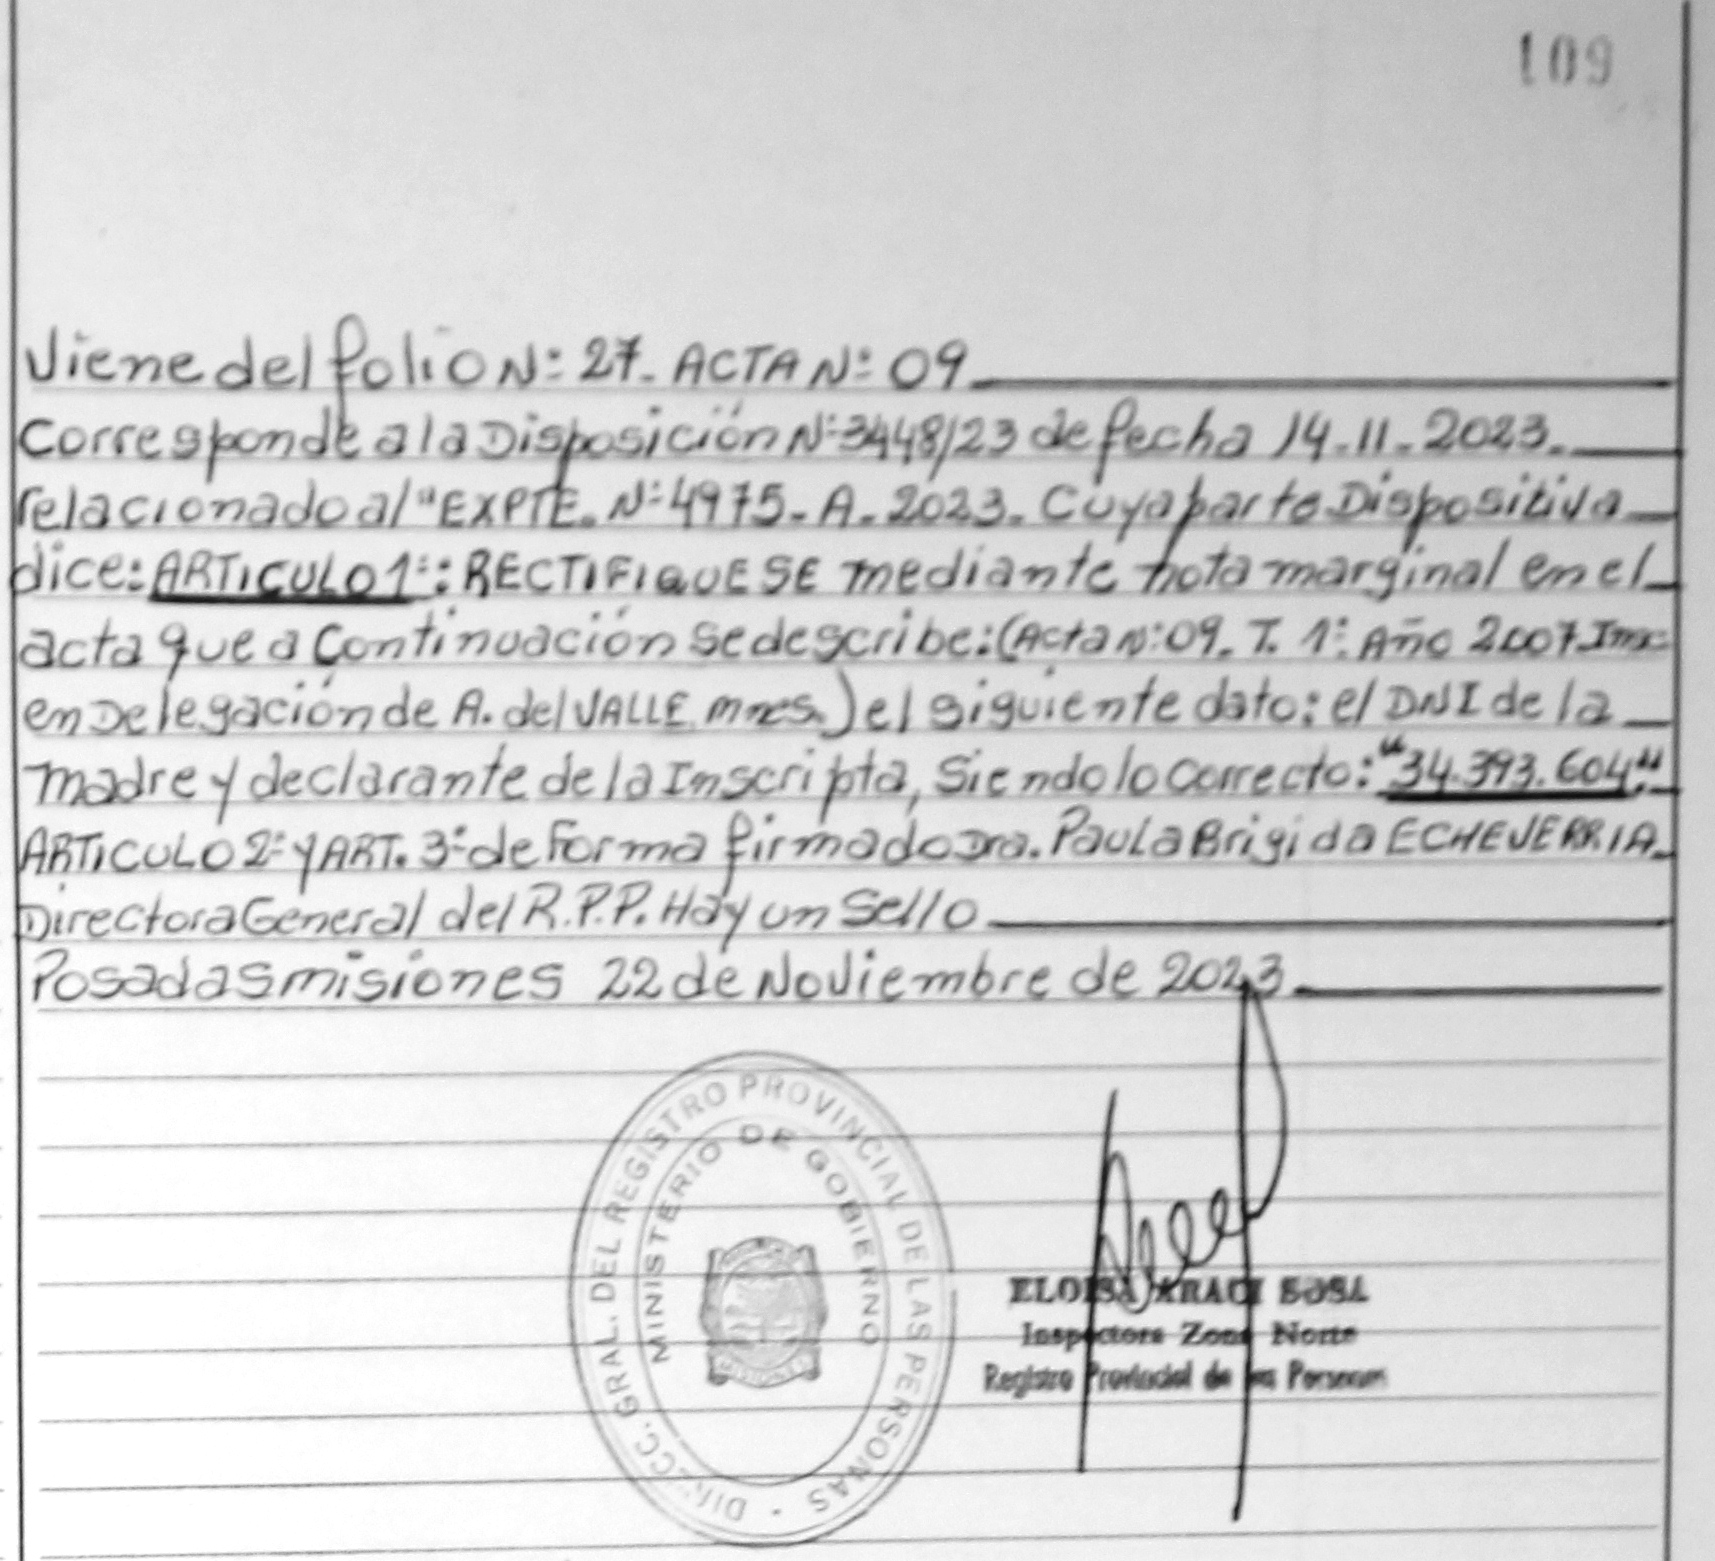 109
Viene del folio N°: 27- ACTA N°: 09
Corresponde a la Disposición N°3448/23 de fecha 14-11-2023.
relacionado al "EXPTE. N°4975-A-2023. Cuya parte Dispositiva
dice: ARTICULO 1°: RECTIFIQUESE mediante nota marginal en el
acta que a Continuación se describe: (Acta N°:09. T. 1° Año 2007 Insc
en Delegación de A. del VALLE Mnes.) el siguiente dato: el DNI de la
madre y declarante de la Inscripta, Siendo lo Correcto: "34.393.604"
ARTICULO 2° y ART. 3° de Forma firmado Dra. Paula Brigida ECHEVERRIA
Directora General del R.P.P. Hay un Sello
Posadas misiones 22 de Noviembre de 2023
DIRECC. GRAL. DEL REGISTRO PROVINCIAL DE LAS PERSONAS
MINISTERIO DE GOBIERNO
MISIONES
ELOISA ARACI SOSA
Inspectora Zona Norte
Registro Provincial de las Personas